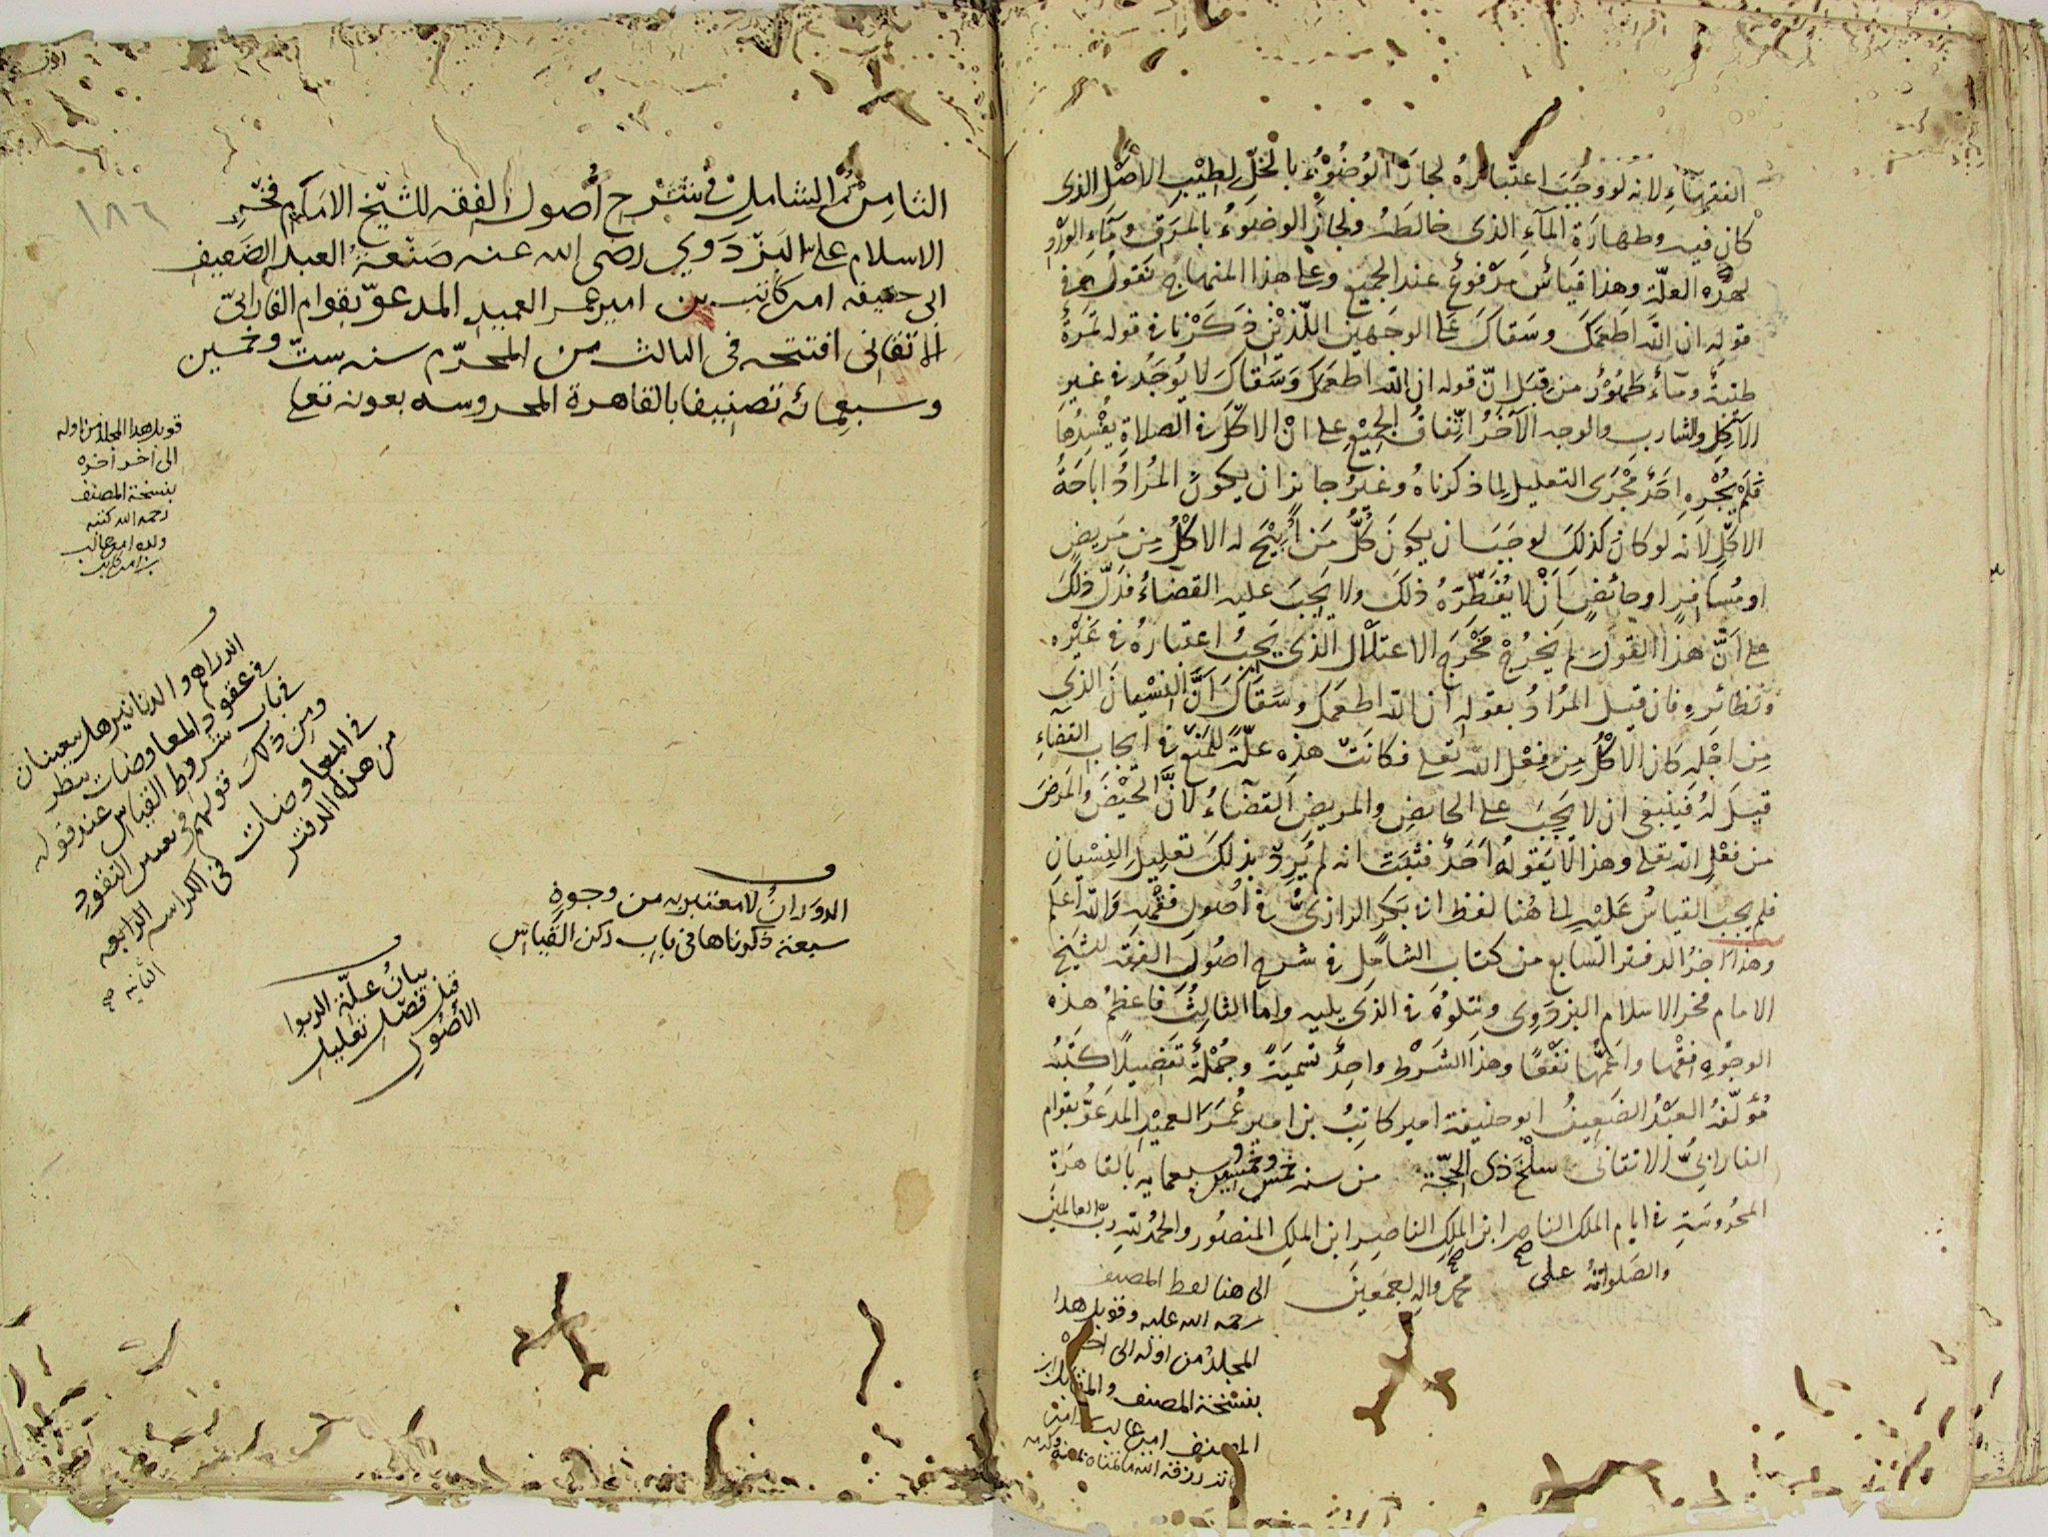 الفقهاء لانه لو وجب اعتباره لجاز الوضوء بالخل لطيب الاصل الذى
كان فيه وطهارة الماء الذى خالطه ولجاز الوضوء بالمرق وماء الورد
لهذه العلة وهذا قياس مدفوع عند الجميع وعلى هذا المنهاج نقول في
قوله ان الله اطعمك وسقاك على الوجهين اللذين ذكرنا في قوله تمرة
طيبة وماء طهور من قبل ان قوله ان الله اطعمك وسقاك لا يوجد في غير
الآكل والشارب والوجه الآخر اتفاق الجميع على ان الاكل في الصلاة يفسدها
فلم يجره احد مجرى التعليل لما ذكرناه وغير جائز ان يكون المراد اباحة
الاكل لانه لو كان كذلك لوجب ان يكون كل من ابيح له الاكل من مريض
او مسافر او حائض ان لا يفطره ذلك ولا يجب عليه القضاء فدل ذلك
على ان هذا القول لم يخرج مخرج الاعتلال الذى يجب اعتباره في غيره
ونظائره فان قيل المراد بقوله ان الله اطعمك وسقاك ان النسيان الذى
من اجله كان الاكل من فعل الله تعلى فكانت هذه علة للمنع في ايجاب القضاء
قيل له فينبغى ان لا يجب على الحائض والمريض القضاء لان الحيض والمرض
من فعل الله تعلى وهذا لا يقوله احد فثبت انه لم يرد بذلك تعليل النسيان
فلم يجب القياس عليه الى هنا لفظ ابى بكر الرازى في اصول فقهه والله اعلم
وهذا آخر الدفتر السابع من كتاب الشامل في شرح اصول الفقه للشيخ
الامام فخر الاسلام البزدوى ونتلوه في الذى يليه واما الثالث فاعظم هذه
الوجوه افقهها واعمها نفعا وهذا الشرط واحد تسمية وجملة تفصيلا كتبه
مؤلفه العبد الضعيف ابو حنيفة امير كاتب بن امير عمر العميد المدعو بقوام
الفارابى الاتقانى سلخ ذى الحجة من سنه خمس وخمسين وسبعمايه بالقاهرة
المحروسة في ايام الملك الناصر ابن الملك الناصر ابن الملك المنصور والحمد لله رب العالمين
والصلوات على محمد واله اجمعين
الى هنا لفظ المصنف
رحمه الله عليه وقوبل هذا
المجلد من اوله الى آخره
بنسخة المصنف والمقابل ابن
المصنف امير غالب
الثامن من الشامل في شرح أصول الفقه للشيخ الامام فخر
الاسلام على البزدوي رضى الله عنه صنعة العبد الضعيف
ابى حنيفه امير كاتب بن امير عمر العميد المدعو بقوام الفارابى
الاتقانى افتتحه فى الثالث من المحرم سنه ست وخمسين
وسبعمائه تصنيفا بالقاهرة المحروسه بعونه تعلى
١٨٦
قوبل هذا المجلد من اوله
الى آخر آخره
بنسخة المصنف
رحمه الله كتبه
ولده امير غالب
بن امير كاتب
الدراهم والدنانير هل يتعينان
في عقود المعاوضات ينظر
في باب شروط القياس عند قوله
ومن ذلك قولهم في تعيين النقود
في المعاوضات في الكراسه الرابعه
من هذه الدفتر
الثانيه صح
الدوران لا معتبر به من وجوه
سبعة ذكرناها في باب ركن القياس
بيان علة الربوا
قبل فصل تعليل
الأصول